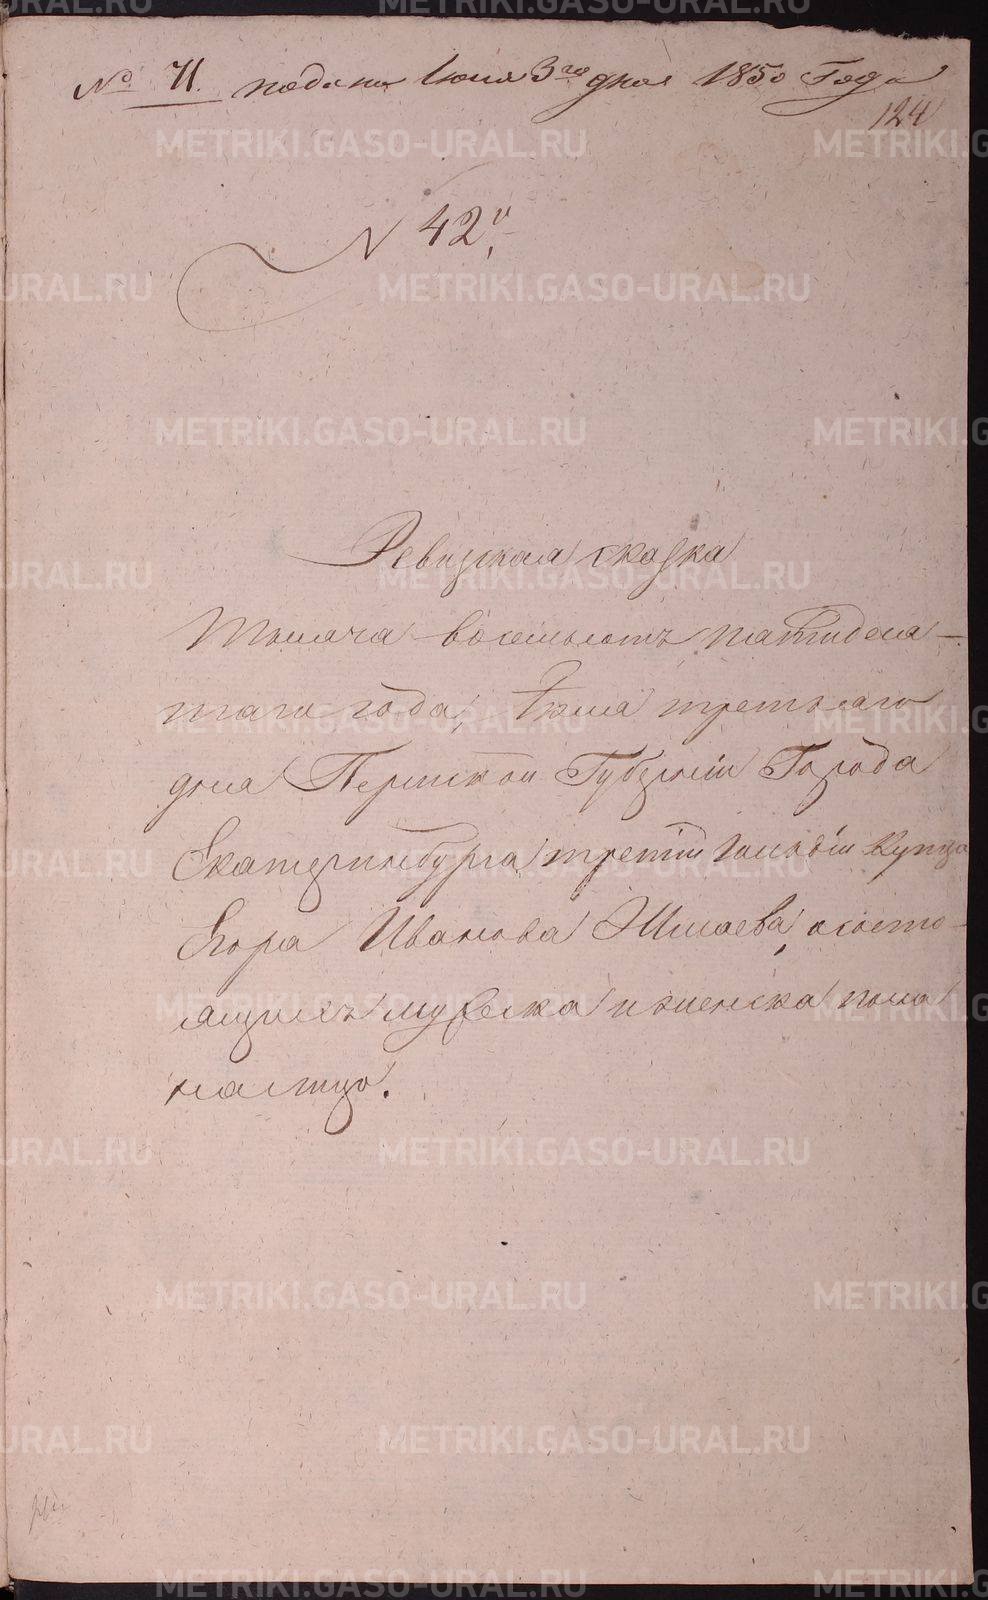 № 71. подана Июня 3го дня 1850 Года
124
№ 42й
Ревизская сказка
Тысяча восемьсотъ пятидеся-
таго года, Июня третьяго
дня Пермской Губерніи Города
Екатеринбурга третій Гильдіи Купца
Егора Иванова о состо-
ящихъ мужеска и женска пола
налицо.
METRIKI.GASO-URAL.RU